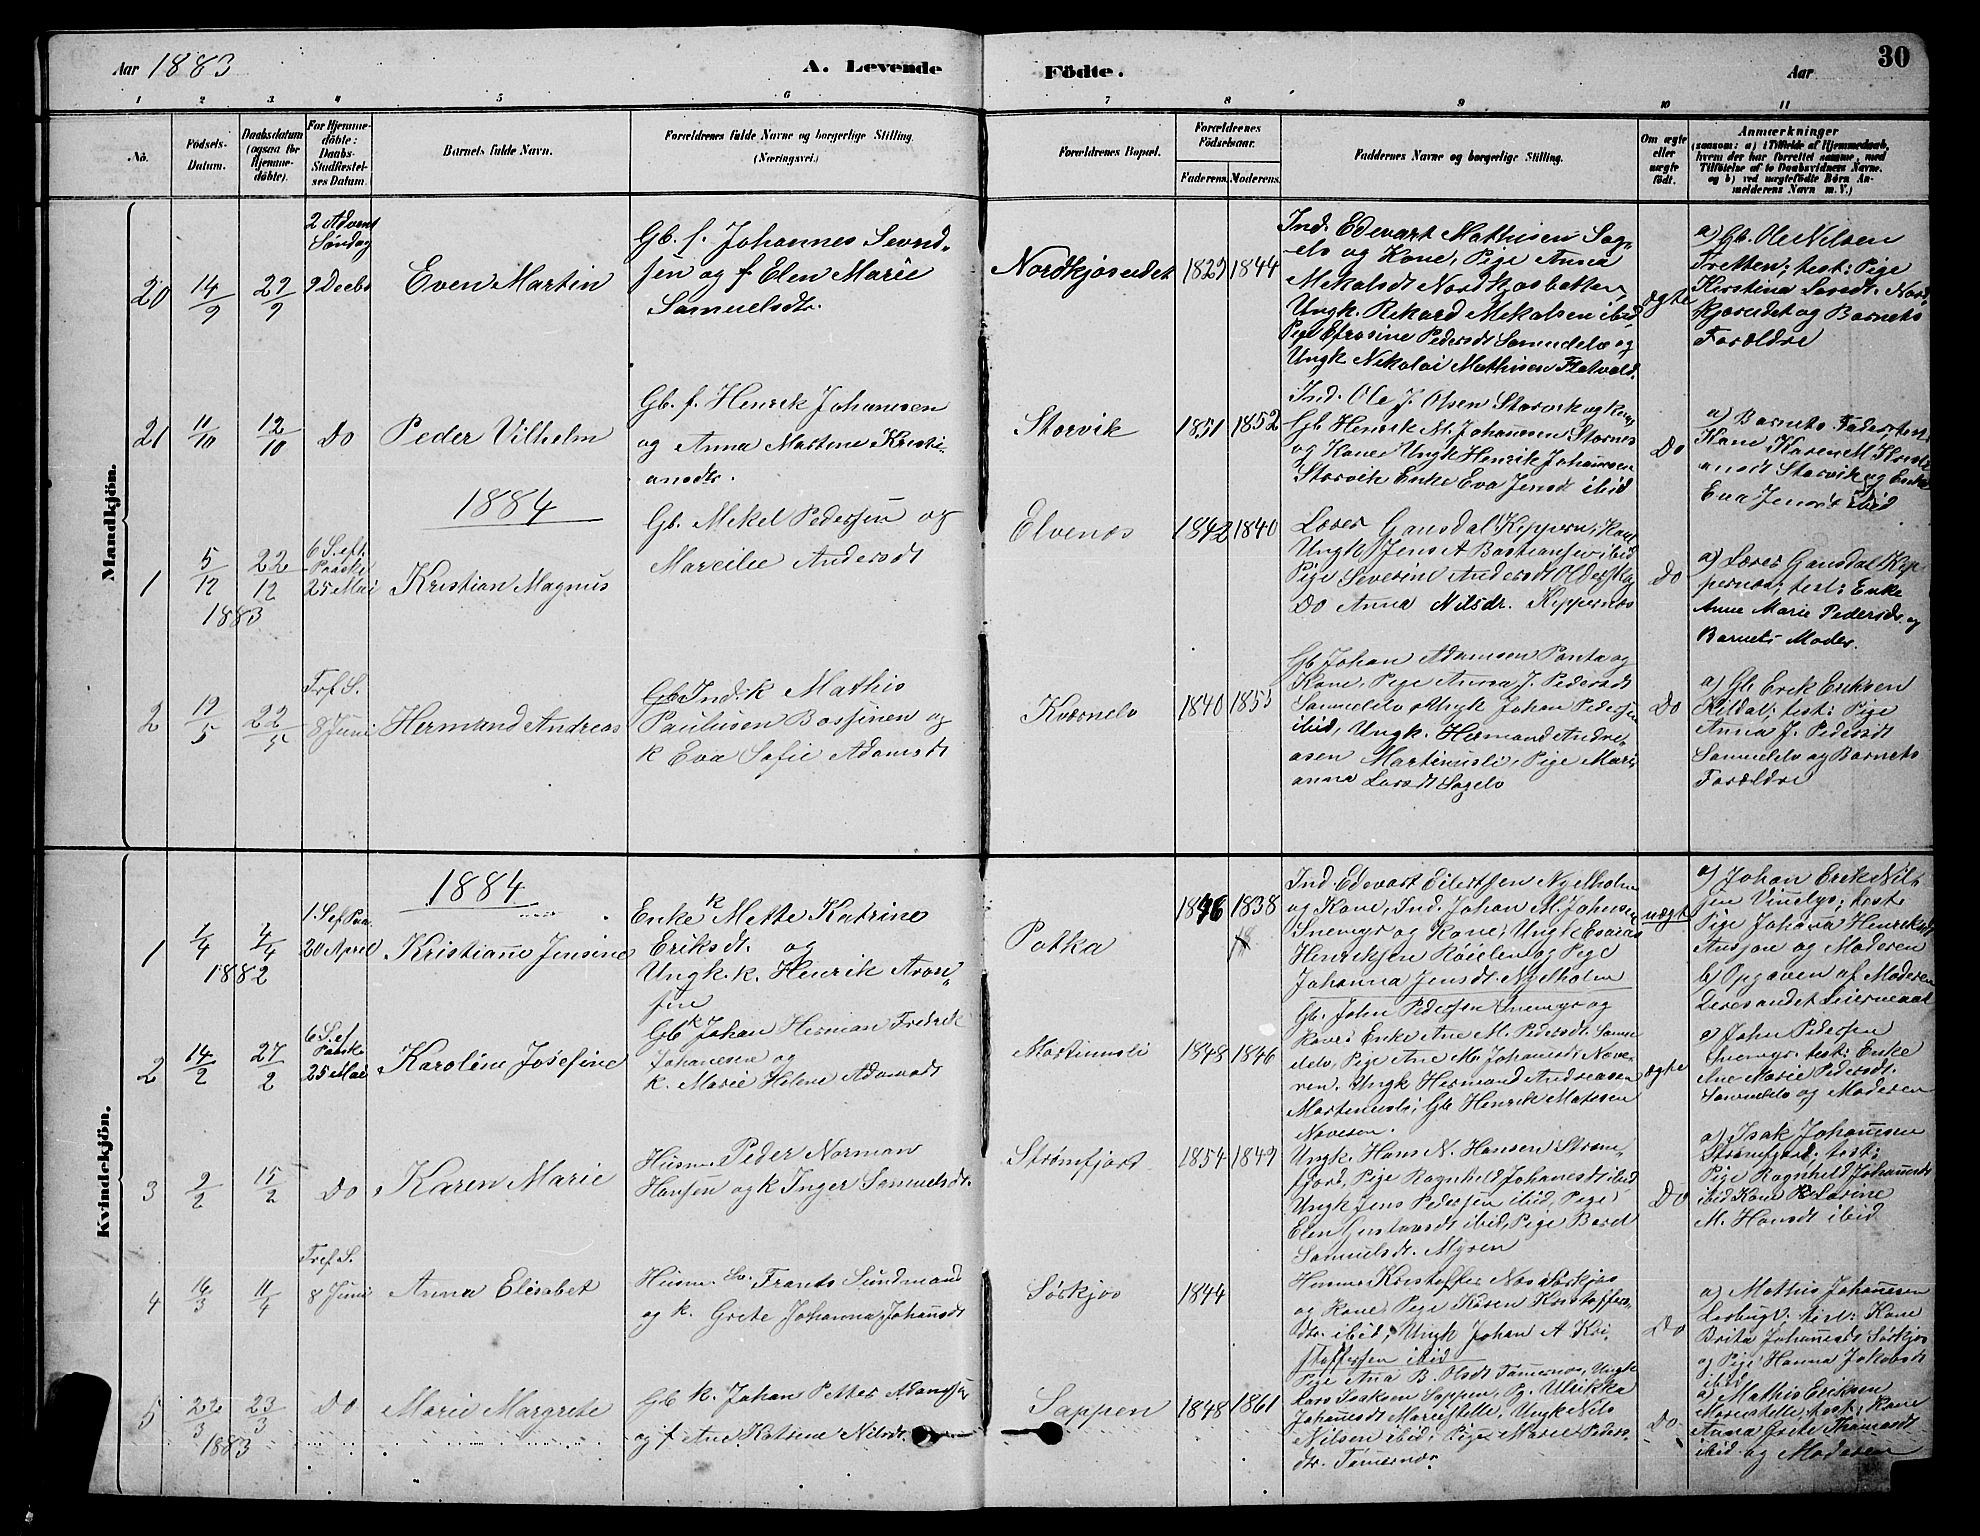 Aar 1883
A. Levende
Födte.
Aar
30
1 2 3. 4 5 6 7 8 9 10 11
No.
Födsels-
Datum.
Daabsdatum
(ogsaa for
Hjemme-
döbte).
For Hjemme-
döbte:
Daabs-
Stadfæstel-
ses Datum.
Barnets fulde Navn.
Forældrenes fulde Navne og borgerlige Stilling.
(Næringsvei.)
Forældrenes Bopæl.
Forældrenes
Födselsaar.
Faderens. Moderens.
Faddernes Navne og borgerlige Stilling.
Om ægte
eller
uægte
födt.
Anmærkninger
(saasom: a) i Tilfælde af Hjemmedaab,
hvem der har forrettet samme, med
Tilföielse af to Daabsvidners Navne.
og b) ved uægtefödte Börn An-
melderens Navn m. V.)
Mandkjön.
20
14/9
29/9
2 Advent
Søndag
9 Decbr
Even Martin
Gb. f. Johannes Sevrid-
sen og f Elen Marie
Samuelsdtr.
Nordkjoseidet
1829
1844
Ind. Edevart Mathisen Sag-
elv og Kone, Pige Anna
Mekalsdt Nordkjosbotten,
Ungk. Rikard Mekalsen ibid,
Pige Efrosine Pedersdt Samuelelv og
Ungk Nikolai Mathisen Flatvold.
ægte
a) Gb. Ole Nilsen
Tretten; test: Pige
Kirstina Larsdt. Nord-
kjoseidet og Barnets
Forældre
21
11/10
12/10
Do
Peder Vilhelm
Gb. f. Henrik Johannesen
og Anna Martine Kristi-
ansdtr.
Storvik
1851
1852
Ind. Ole J. Olsen Storvik og Kone,
Gb Henrik M. Johannesen Stornes
og Kone, Ungk Henrik Johansen
Storvik Enke Eva Jensdt ibid
Do
a) Barnets Fader, test:
Kone Karen M. Kristi-
ansdt Storvik og Enke
Eva Jensdt ibid
1884
1
5/12
22/12
1883
6 S. eft.
Paaske
25 Mai
Kristian Magnus
Gb. Mikel Pedersen og
Marcilie Andersdt
Elvenes
1842
1840
Lærer Gausdal Kippern, Kone
Ungk Jens A Bastiansen ibid
Pige Severine Andersdt
Do Anna Nilsdr. Kippernes
Do
a) Lærer Gausdal Kip-
pernes; test: Enke
Anne Marie Pedersdr og
Barnets Moder.
2
19/5
22/5
Tref S.
8 Juni
Hermand Andreas
Gb Ind. k Mathis
Paulusen Bossinen og
k Eva Sofie Adamsdt
Kvernelv
1840
1855
Gb Johan Adamsen Ponta og
Kone, Pige Anna J. Pedersdt
Samuelelv, Ungk Johan Pedersen
ibid, Ungk. Hermand Andre-
asen Martinusli, Pige Mari-
anna Larsdt Sagelv
Do
a) Gb Erik Eriksen
Kildal; test: Pige
Anna J. Pedersdt
Samuelelv og Barnets
Forældre
Kvindekjön.
1884
1
1/4
4/4
1882
1. S ef Paa.
20 April
Kristiane Jensine
Enke k Mette Katrine
Eriksdt. og
Ungk. k. Henrik Aron-
sen
Potka
1846
1838
Ind. Edevart Eilertsen Nyelholm
og Kone, Ind. Johan M. Johnsen
Snemyr og Kone, Ungk Esaias
Henriksen Røielen og Pige
Johanna Jensdt. Nyelholm
uægte
a) Johan Erik Nil-
sen Vinelys; test:
Pige Johanna Henriksdt
Ansjon og Moderen
b) Opgaven af Moderen
2
14/2
27/2
6 S. ef
Paask.
25 Mai
Karoline Josefine
Gb k Johan Herman Fredrik
Johanesen og
k. Marie Helene Adamsdt
Martinusli
1848
1846
Gb. John Pedersen Snemyr og
Kone, Enke Ane M. Pedersdt. Samu-
elelv, Pige Ane M. Johanesdt. Nove-
ren. Ungk Hermand Andreasen
Martinusli, Gb Henrik Matisen
Noveren.
ægte
a) John Pedersen
Snemyr. test: Enke
Ane Marie Pedersdt.
Samuelelv og Moderen
3
9/2
15/2
Do
Karen Marie
Husm. Peder Norman
Hansen og k Inger Samuelsdt.
Strømfjord
1854
1849
Ungk. Hans N. Hansen Strøm-
fjord, Pige Ragnhild Johanesdt ibid
Ungk Jens Pedersen ibid, Pige
Elen Gustavsdt ibid, Pige Berel
Samuelsdt. Myren
Do
a) Isak Johannesen
Strømfjord. test:
Pige Ragnhild Johannesdt
ibid Kone K Larine
M. Hansdt ibid
4
16/3
11/4
Tref S.
8 Juni
Anna Elisabet
Husm. Sv. Frants Sundmand
og k. Grete Johanna Johansdt
Sørkjos
1844
Husm Kristoffer Nos Sørkjos
og Kone, Pige Karen Kristoffers-
dtr. ibid, Ungk Johan A Kri-
stoffersen ibid
Do
a) Mathis Johannesen
test: Kone
Brita Johannesdt Sørkjos
og Pige Hanna Jakobsdt
ibid
5
22/3
23/3
1883
Do
Marie Margrete
Gb k. Johan Petter Adamsen
og f Ane Katrine Nilsdt.
Sappen
1848
1861
Pige Ana B. Olsdt Tømernes, Ungk
Lars Isaksen Sappen, Pg. Ulrikka
Johanesdt Mariestelle, Ungk Nils
Nilsen ibid; Pige Marie Peders-
dtr. Tømernes
Do
a) Mathis Eriksen
Mariestelle, test: Kone
Anna Grete Thomasdt
ibid og Moderen